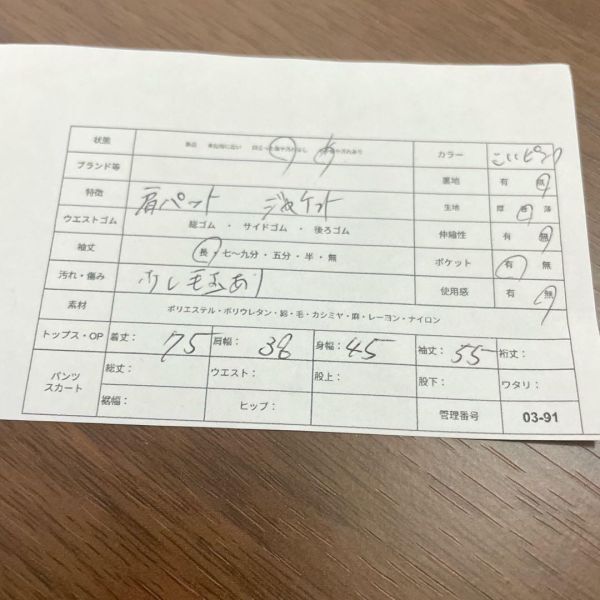 状態 新品 未使用に近い 目立った傷や汚れなし やや傷や汚れあり カラー こいピンク
ブランド等 裏地 有 無
特徴 肩パット ジャケット 生地 厚 普 薄
ウエストゴム 総ゴム ・ サイドゴム ・ 後ろゴム 伸縮性 有 無
袖丈 長・七〜九分・五分・半・無 ポケット 有 無
汚れ・傷み 少し毛玉あり 使用感 有 無
素材 ポリエステル・ポリウレタン・綿・毛・カシミヤ・麻・レーヨン・ナイロン
トップス・OP 着丈： 75 肩幅： 38 身幅： 45 袖丈： 55 裄丈：
パンツ スカート 総丈： ウエスト： 股上： 股下： ワタリ：
裾幅： ヒップ： 管理番号 03-91